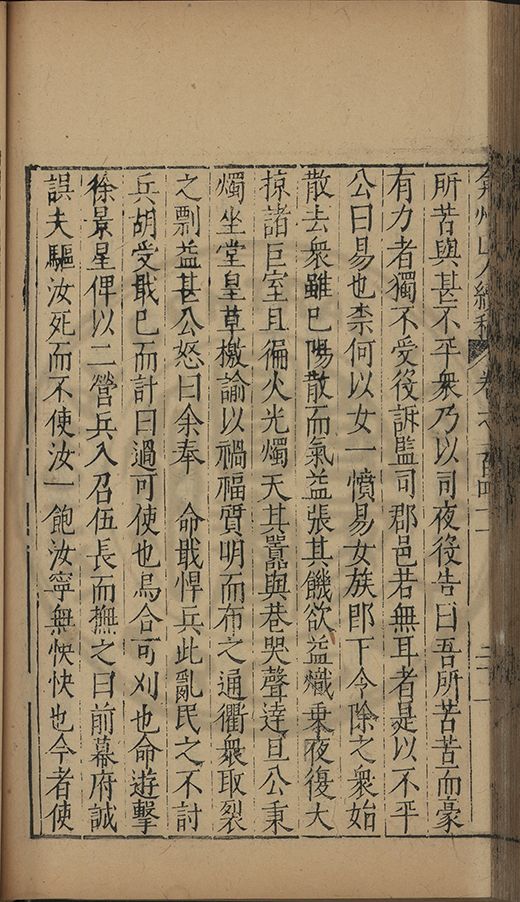 弇州山人續稿 卷之一百四十一 二十一
所苦與甚不平衆乃以司夜役告曰吾所苦苦而豪
有力者獨不受役訴監司郡邑若無耳者是以不平
公曰易也柰何以女一憤易女族即下令除之衆始
散去衆雖已陽散而氣益張其饑欲益熾乗夜復大
掠諸巨室且徧火光燭天其嚣與巷哭聲達旦公秉
燭坐堂皇草檄諭以禍福質明而布之通衢衆取裂
之剽益甚公怒曰余奉 命戢悍兵此亂民之不討
兵胡受戢已而計曰過可使也烏合可刈也命遊擊
徐景星俾以二營兵入召伍長而撫之曰前幕府誠
誤夫驅汝死而不使汝一飽汝寧無怏怏也今者使